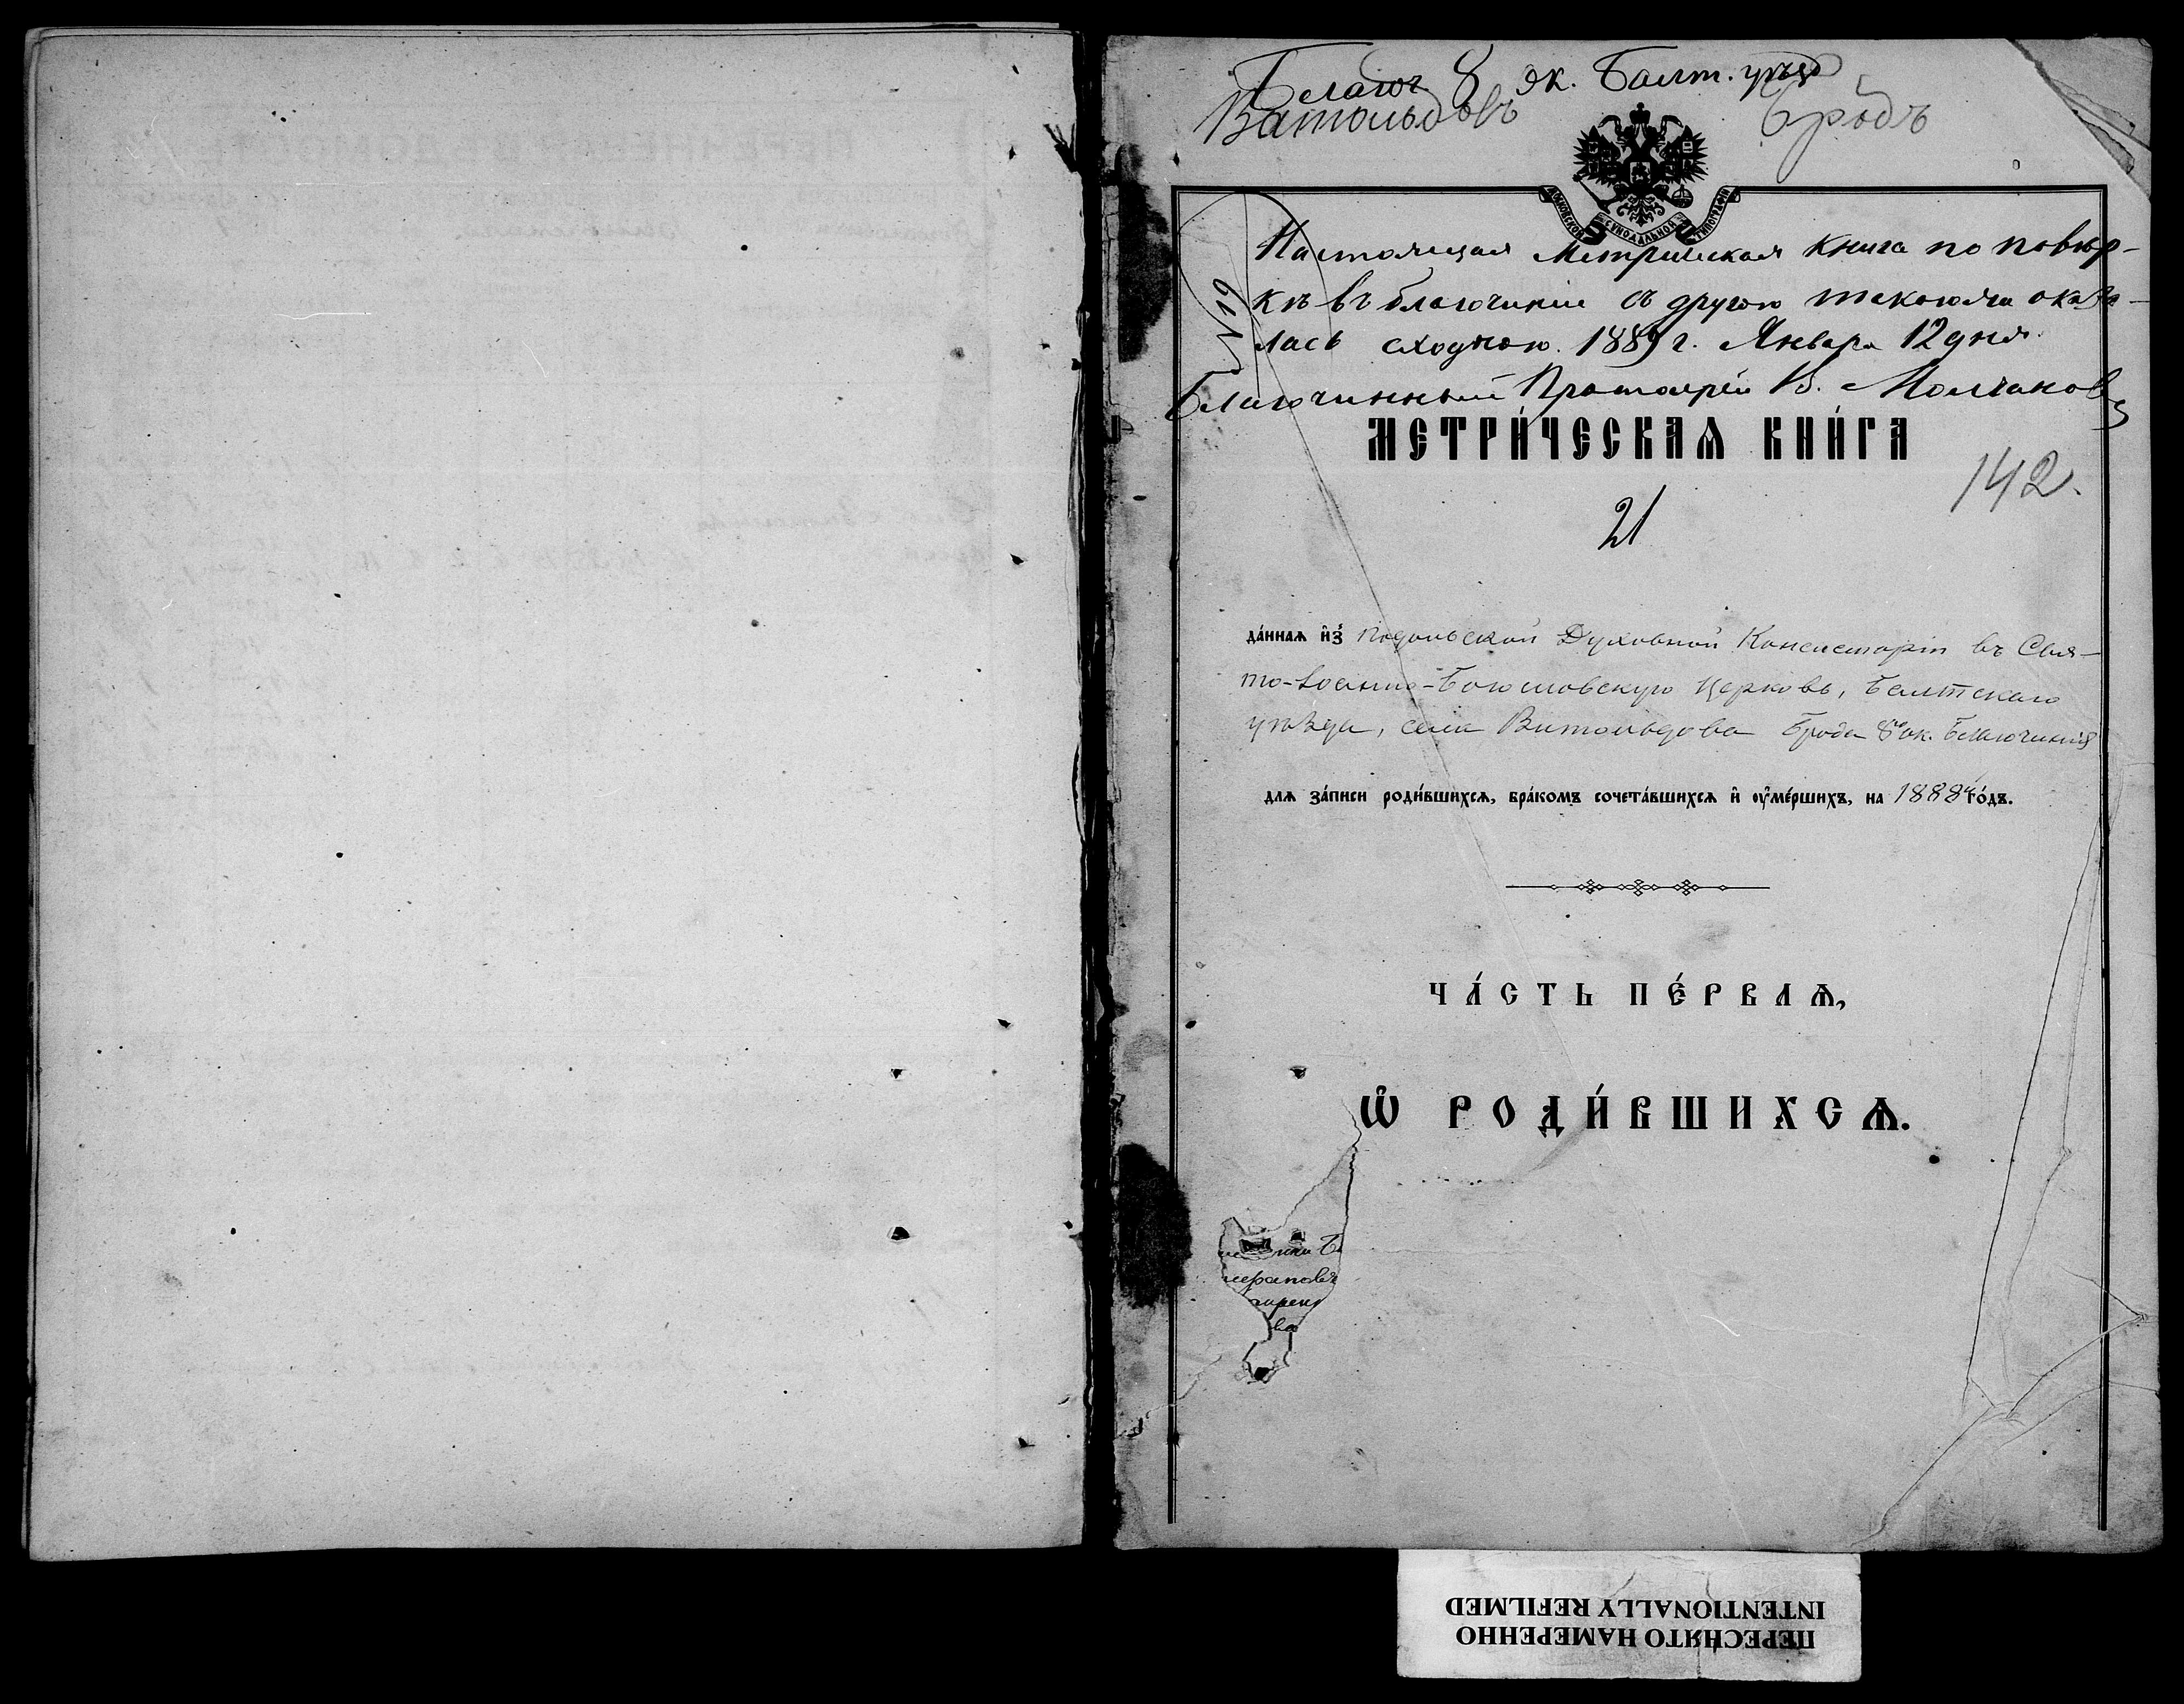 Благоч. 8 ок. Балт. уѣзд
Витольдовъ Бродъ
МОСКОВСКОЙ СѴНОДАЛЬНОЙ ТИПОГРАФІИ
Настоящая Метрическая книга по повѣр-
кѣ въ благочиніи съ другою таковою оказа-
лась сходною. 1889 г. Января 12 дня.
Благочинный Протоіерей В. Молчановъ
№19
МЕТРИ́ЧЕСКАѦ КНИ́ГА
142.
21
да́ннаѧ и҆з̾ Подольской Духовной Консисторіи въ Свя-
то-Іоанно-Богословскую церковь, Балтскаго
уѣзда, села Витольдова Брода 8го ок. Благочинія
длѧ за́писи роди́вшихсѧ, бра́комъ сочета́вшихсѧ и҆ ᲂу҆ме́ршихъ, на 1888й го́дъ.
ЧА́СТЬ ПЕ́РВАѦ,
Ѽ РОДИ́ВШИХСѦ.
ПЕРЕСНЯТО НАМЕРЕННО
INTENTIONALLY REFILMED